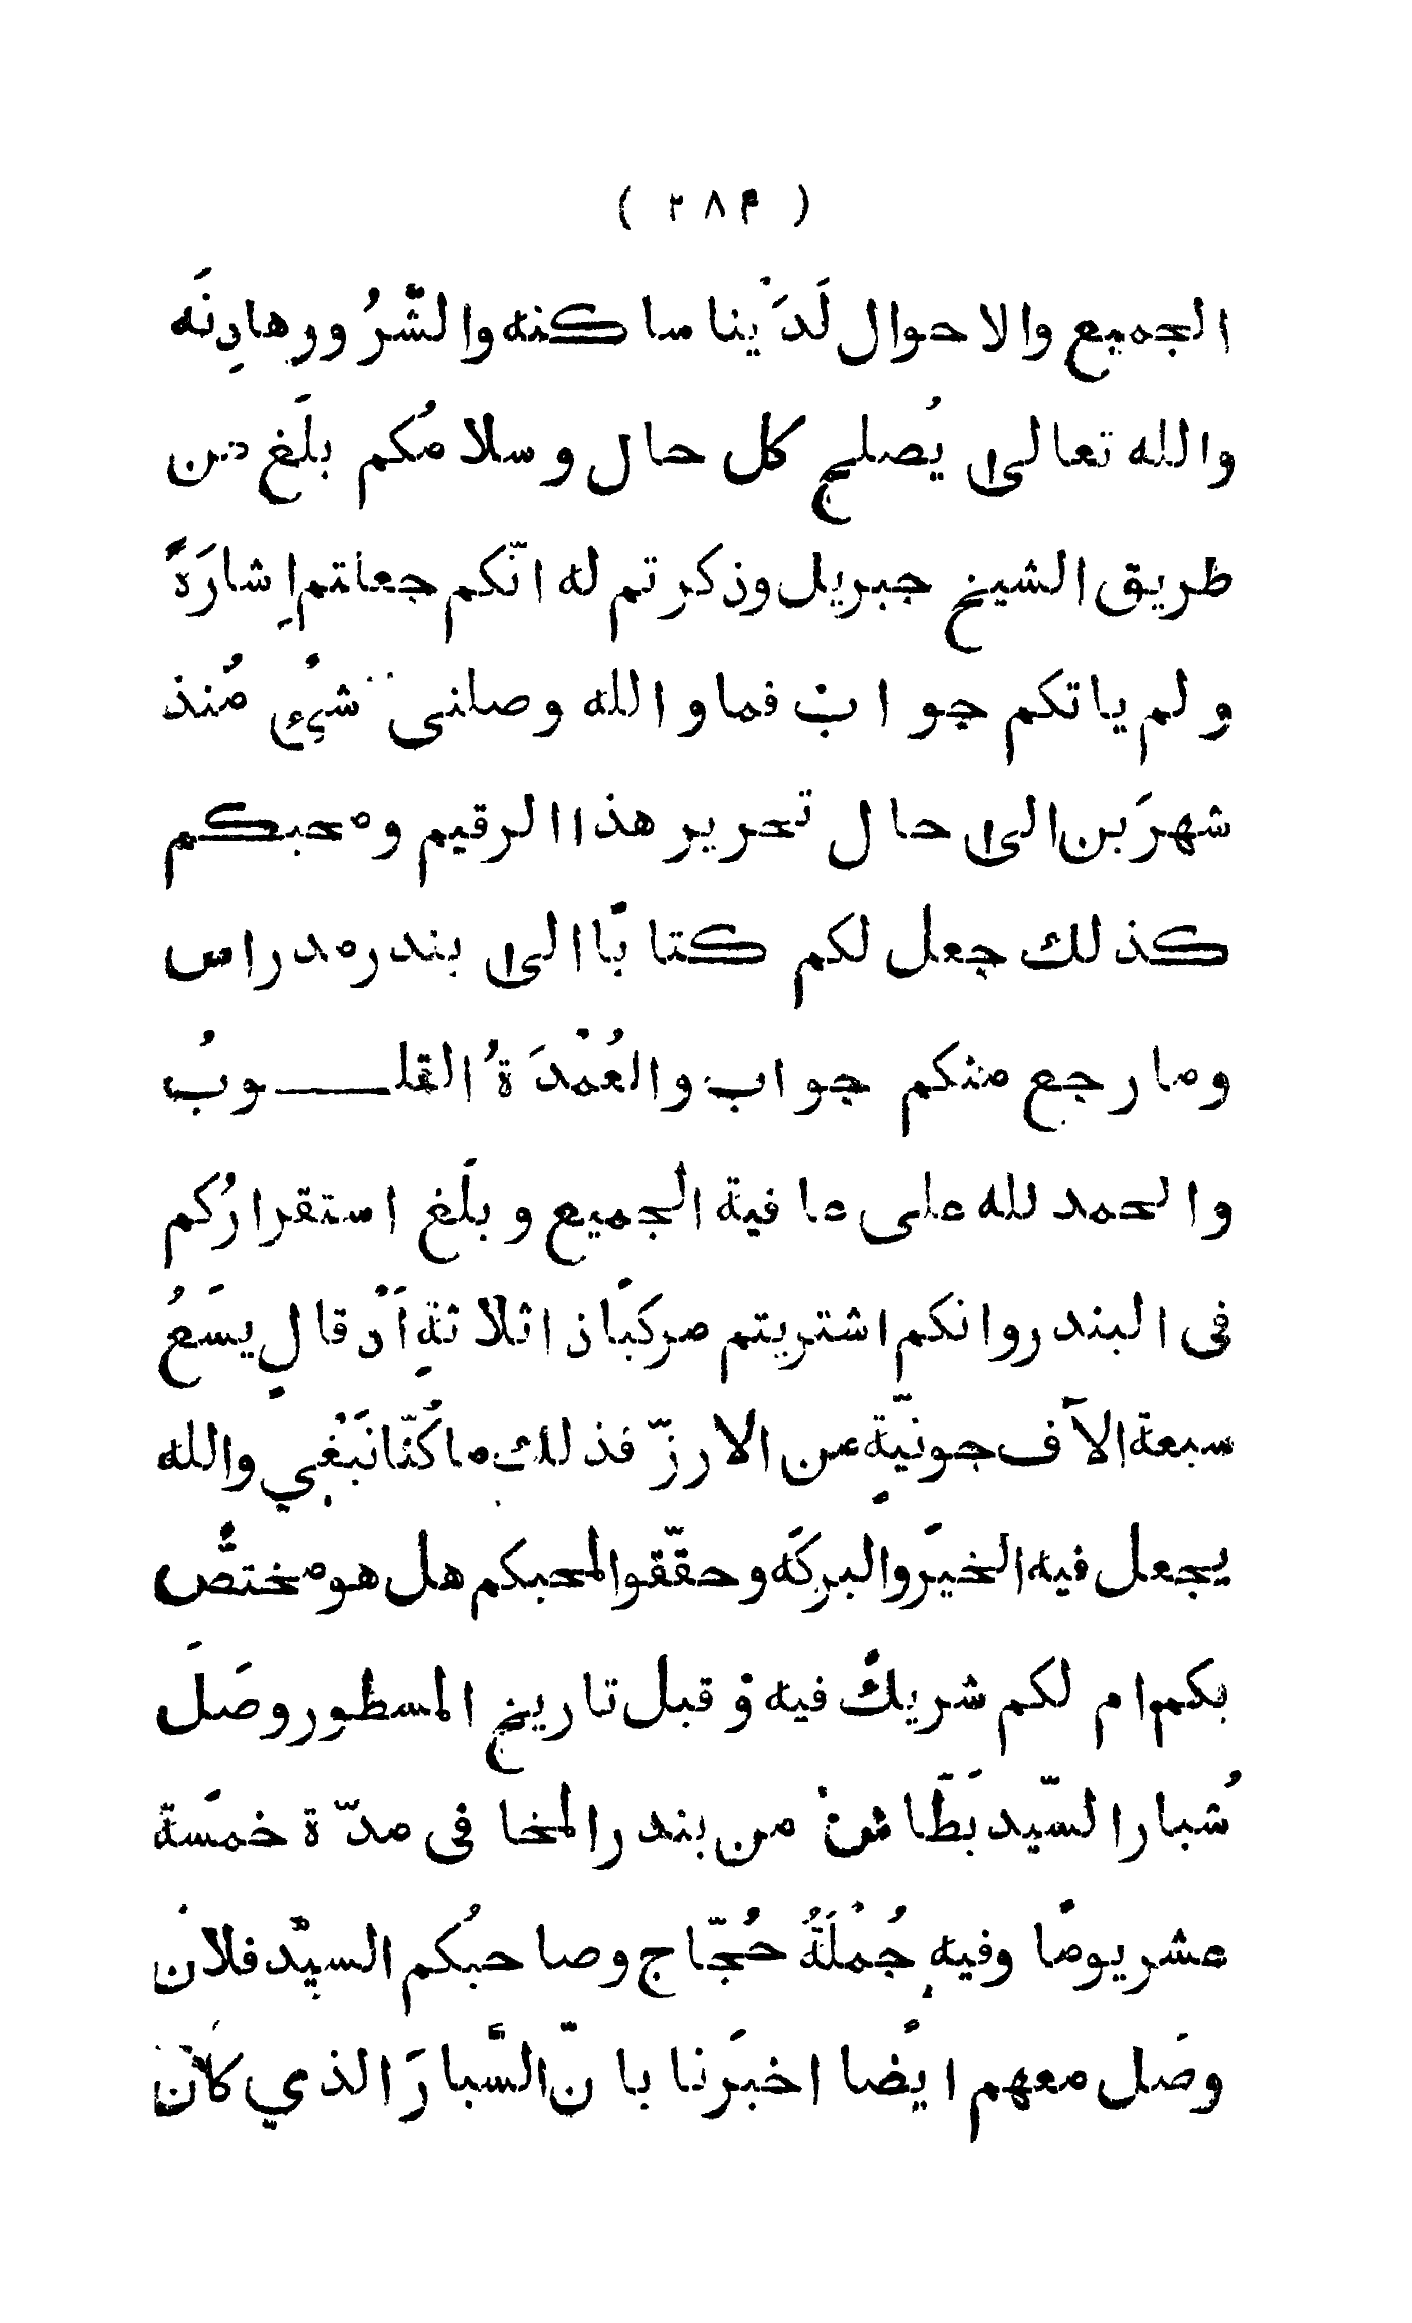 ( ٢٨٩ )
الجميع والاحوال لَدَيْنا ساكنه والشّرُ وور هادِنَه
والله تعالى يُصلح كل حال وسلامُكم بلَغ من
طريق الشيخ جبريل وذكرتم له انّكم جعلتم إشارَةً
ولم ياتكم جوابٌ فما والله وصلنى شيْءٌ مُنذ
شهرَين الى حال تحرير هذا الرقيم ومحبكم
كذلك جعل لكم كتابًا الى بندر مدراس
وما رجع منكم جواب والعُمْدَةُ القلــوبُ
والحمد لله على عافية الجميع وبلَغ استقرارُكم
فى البندر وانكم اشتريتم مركبًا ذا ثلاثةِ اَدْقالٍ يسَعُ
سبعة الآف جونيّةٍ من الارزّ فذلك ما كُنّا نَبْغِي والله
يجعل فيه الخيَر والبركَه وحقّقوا لمحبكم هل هو مختصٌّ
بكم ام لكم شريكٌ فيه وْ قبل تاريخ المسطور وصَلَ
شُبار السّيد بَطَّاشْ من بندر المخا فى مدّة خمسَة
عشر يومًا وفيهِ جُمْلَةُ حُجّاج وصاحبُكم السيِّد فلان
وصَل معهم ايضًا اخبَرنا بانّ السَّبارَ الذي كانَ